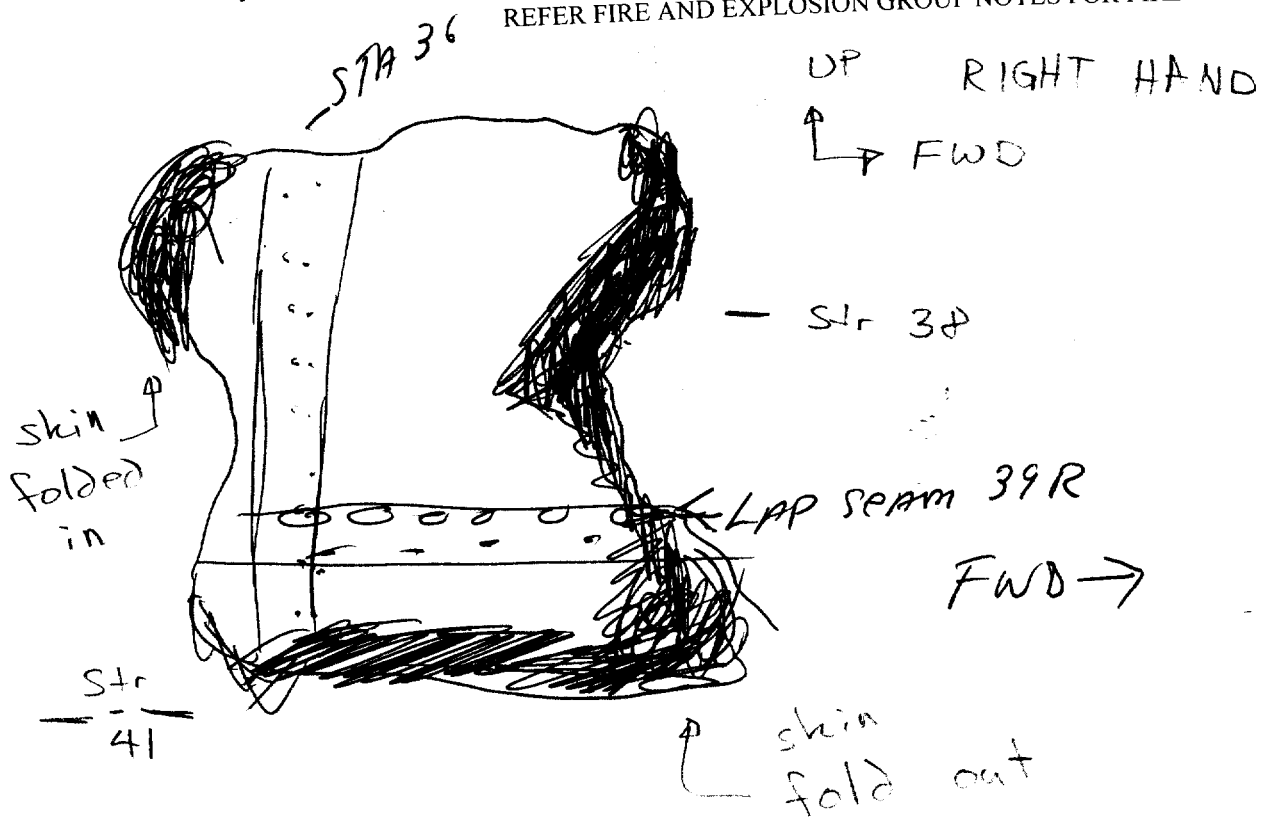 REFER FIRE AND EXPLOSION GROUP NOTES FOR
STA 36
UP RIGHT HAND
FWD
Str 38
skin
folded
in
LAP SEAM 39R
FWD
Str
41
skin
fold out